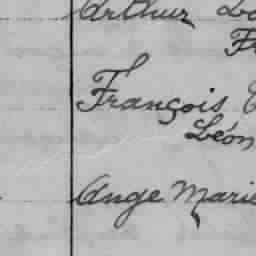 Arthur
François
Léon
Ange Marie